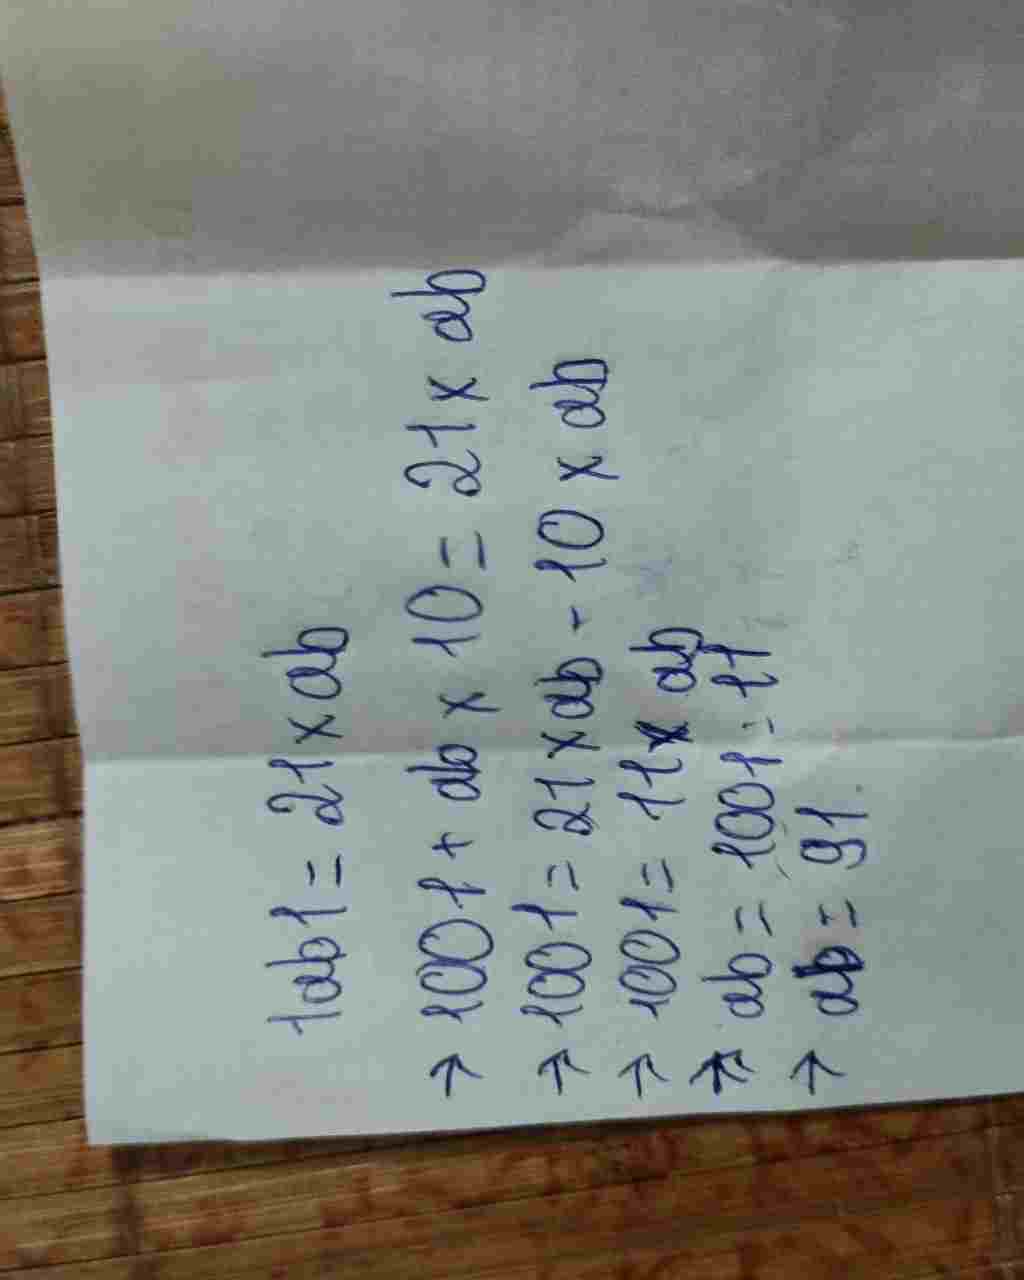 1ab1 = 21 x ab
→ 1001 + ab x 10 = 21 x ab
→ 1001 = 21 x ab - 10 x ab
→ 1001 = 11 x ab
→ ab = 1001 : 11
→ ab = 91.